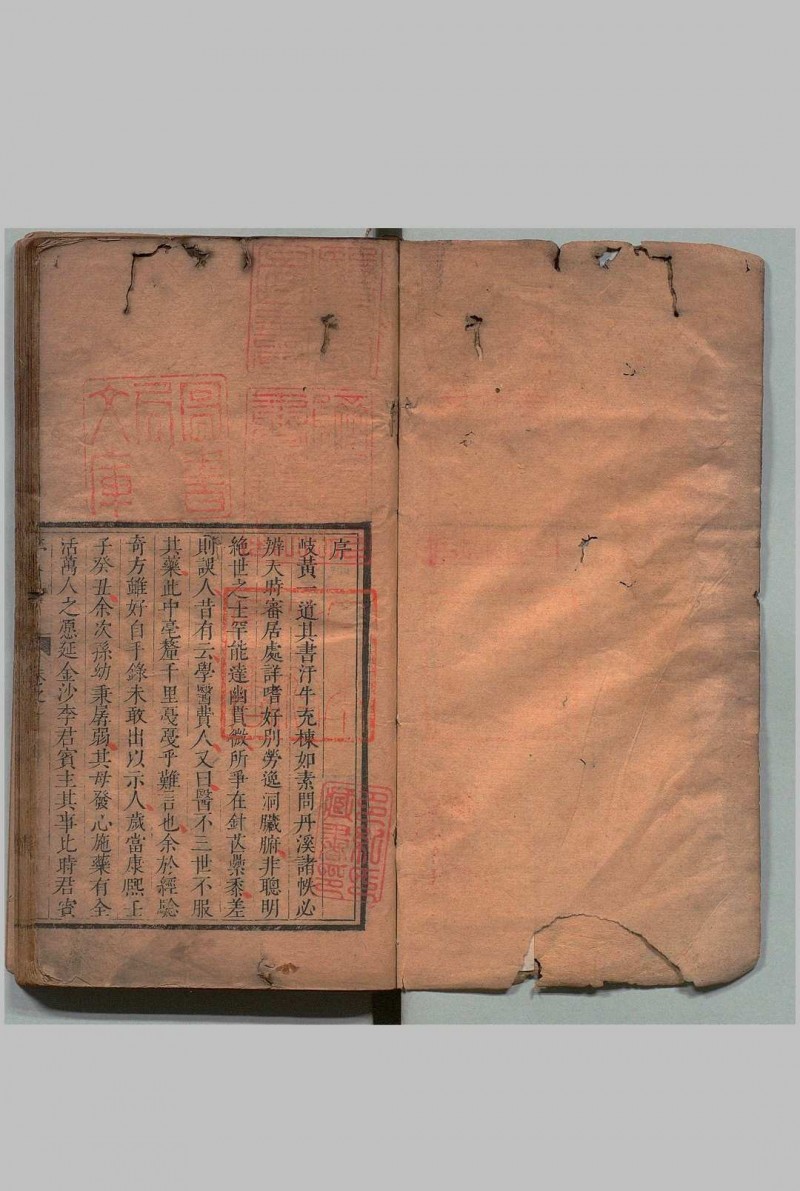 序
岐黃一道其書汗牛充棟如素問丹溪諸帙必
辨天時審居處詳嗜好別勞逸洞臟腑非聰明
絕世之士罕能達幽貫微所爭在針芥纍黍差
則誤人昔有云學醫費人又曰醫不三世不服
其藥此中毫釐千里戞戞乎難言也余於經驗
奇方雖好自手錄未敢出以示人歲當康熙壬
子癸丑余次孫幼秉孱弱其母發心施藥有全
活萬人之愿延金沙李君賓主其事比時君賓
圖書
局
文庫